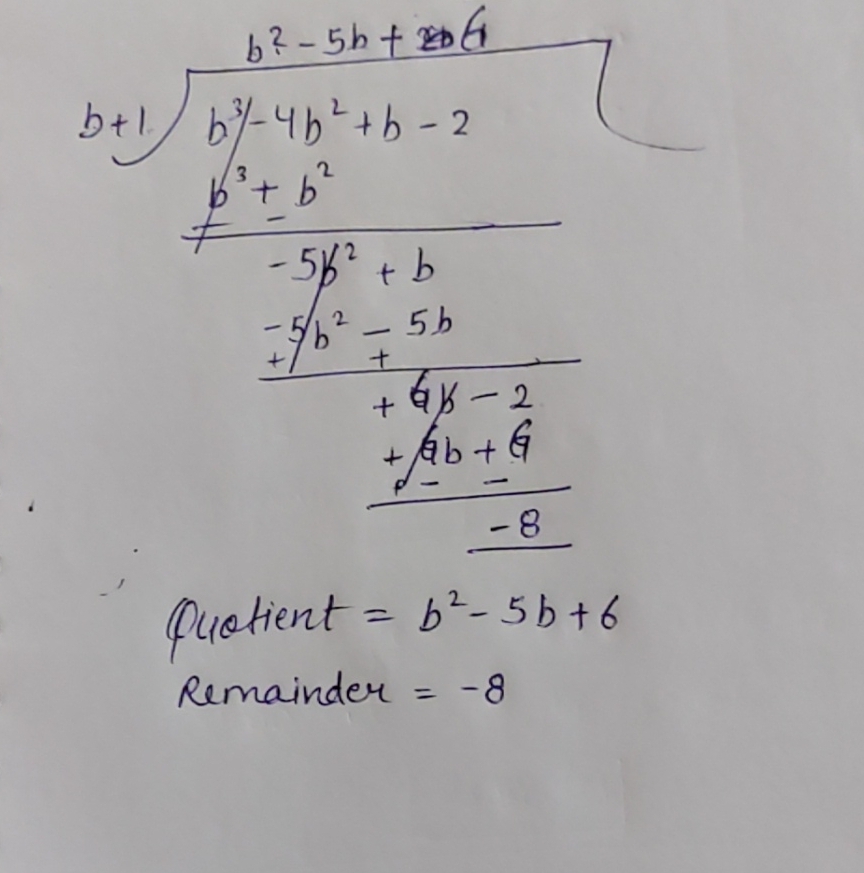 b² - 5b + 6
b+1 b³ - 4b² + b - 2
b³ + b²
- -
-5b² + b
-5b² - 5b
+ +
+ 6b - 2
+ 6b + 6
- -
-8
Quotient = b² - 5b + 6
Remainder = -8